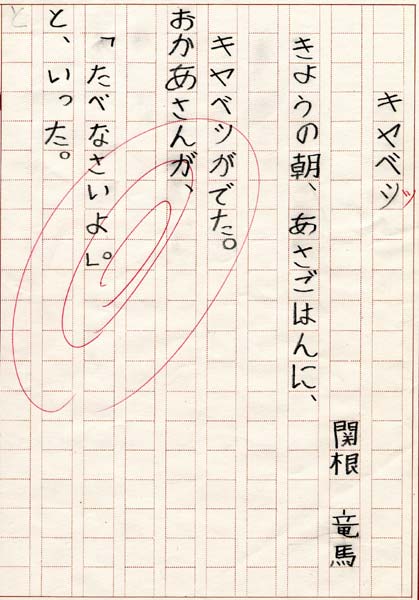 キヤベツ
関根 竜馬
きょうの朝、あさごはんに、
キヤベツがでた。
おかあさんが、
「たべなさいよ」。
と、いった。